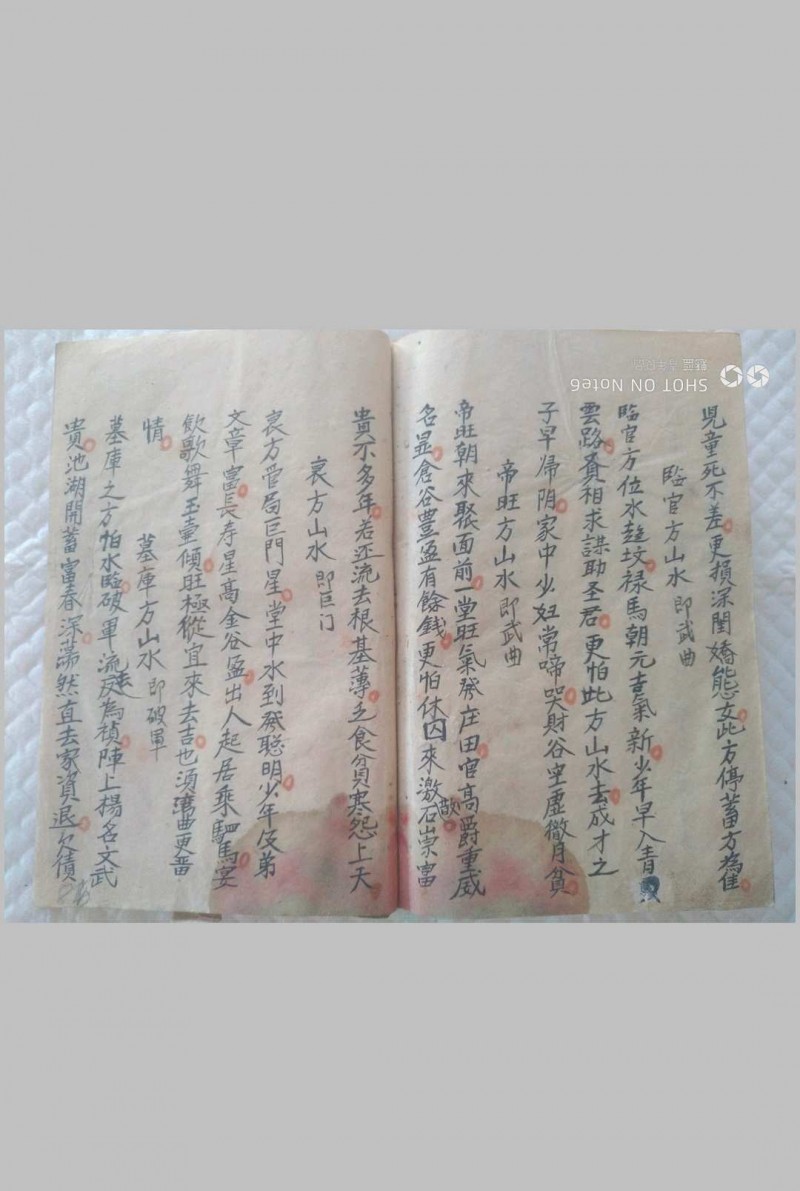 児童死不差更損深閨嬌態女此方停蓄方為佳
臨官方山水 即武曲
臨官方位水遶坟禄馬朝元喜氣新少年早入青
雲路貴相求謀助圣君更怕此方山水去成才之
子早帰阴家中少妇常啼哭財谷空虚徹月貧
帝旺方山水 即武曲
帝旺朝來聚面前一堂旺氣発庄田官高爵重威
名显倉谷豊盈有餘錢更怕休囚來激歇石崇富
貴不多年若还流去根基薄乏食貧寒怨上天
衰方山水 即巨门
衰方管局巨門星堂中水到発聪明少年伋弟
文章富長寿星高金谷盈出人起居乘駟馬宴
飲歌舞玉壷傾旺極從宜來去吉也须湾曲更畱
情
墓庫方山水 即破軍
墓庫之方怕水臨破軍流去反為禎陣上楊名文武
貴池湖開蓄富春深蕩然直去家資退欠債
SHOT ON Note6